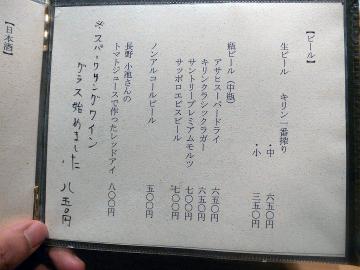 【ビール】
生ビール　キリン一番搾り
・中　六五〇円
・小　三五〇円
瓶ビール（中瓶）
アサヒスーパードライ　六五〇円
キリンクラシックラガー　六五〇円
サントリープレミアムモルツ　七〇〇円
サッポロエビスビール　七〇〇円
ノンアルコールビール　五〇〇円
長野 小池さんの
トマトジュースで作ったレッドアイ　八〇〇円
※スパークリングワイン
グラス始めました　八五〇円
【日本酒】